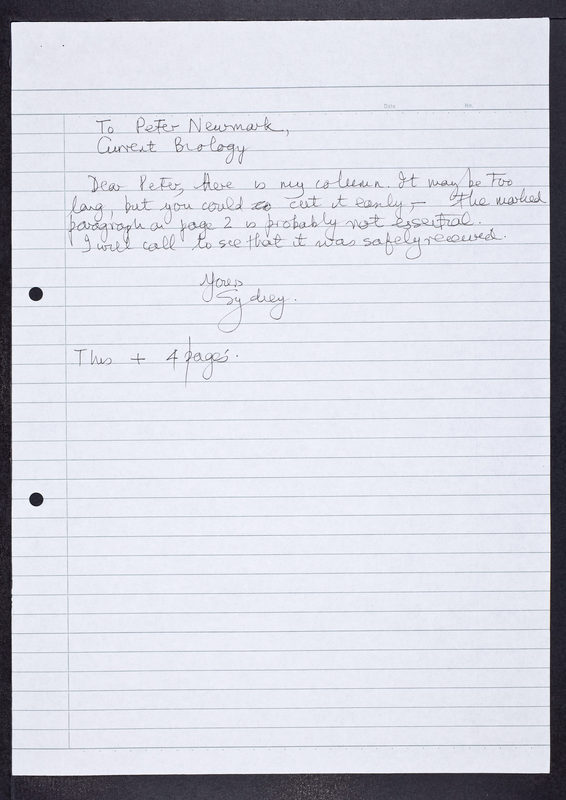 Date No.
To Peter Newmark,
Current Biology
Dear Peter, Here is my column. It may be too
long, but you could cut it easily – the marked
paragraph on page 2 is probably not essential.
I will call to see that it was safely received.
Yours
Sydney.
This + 4 pages.